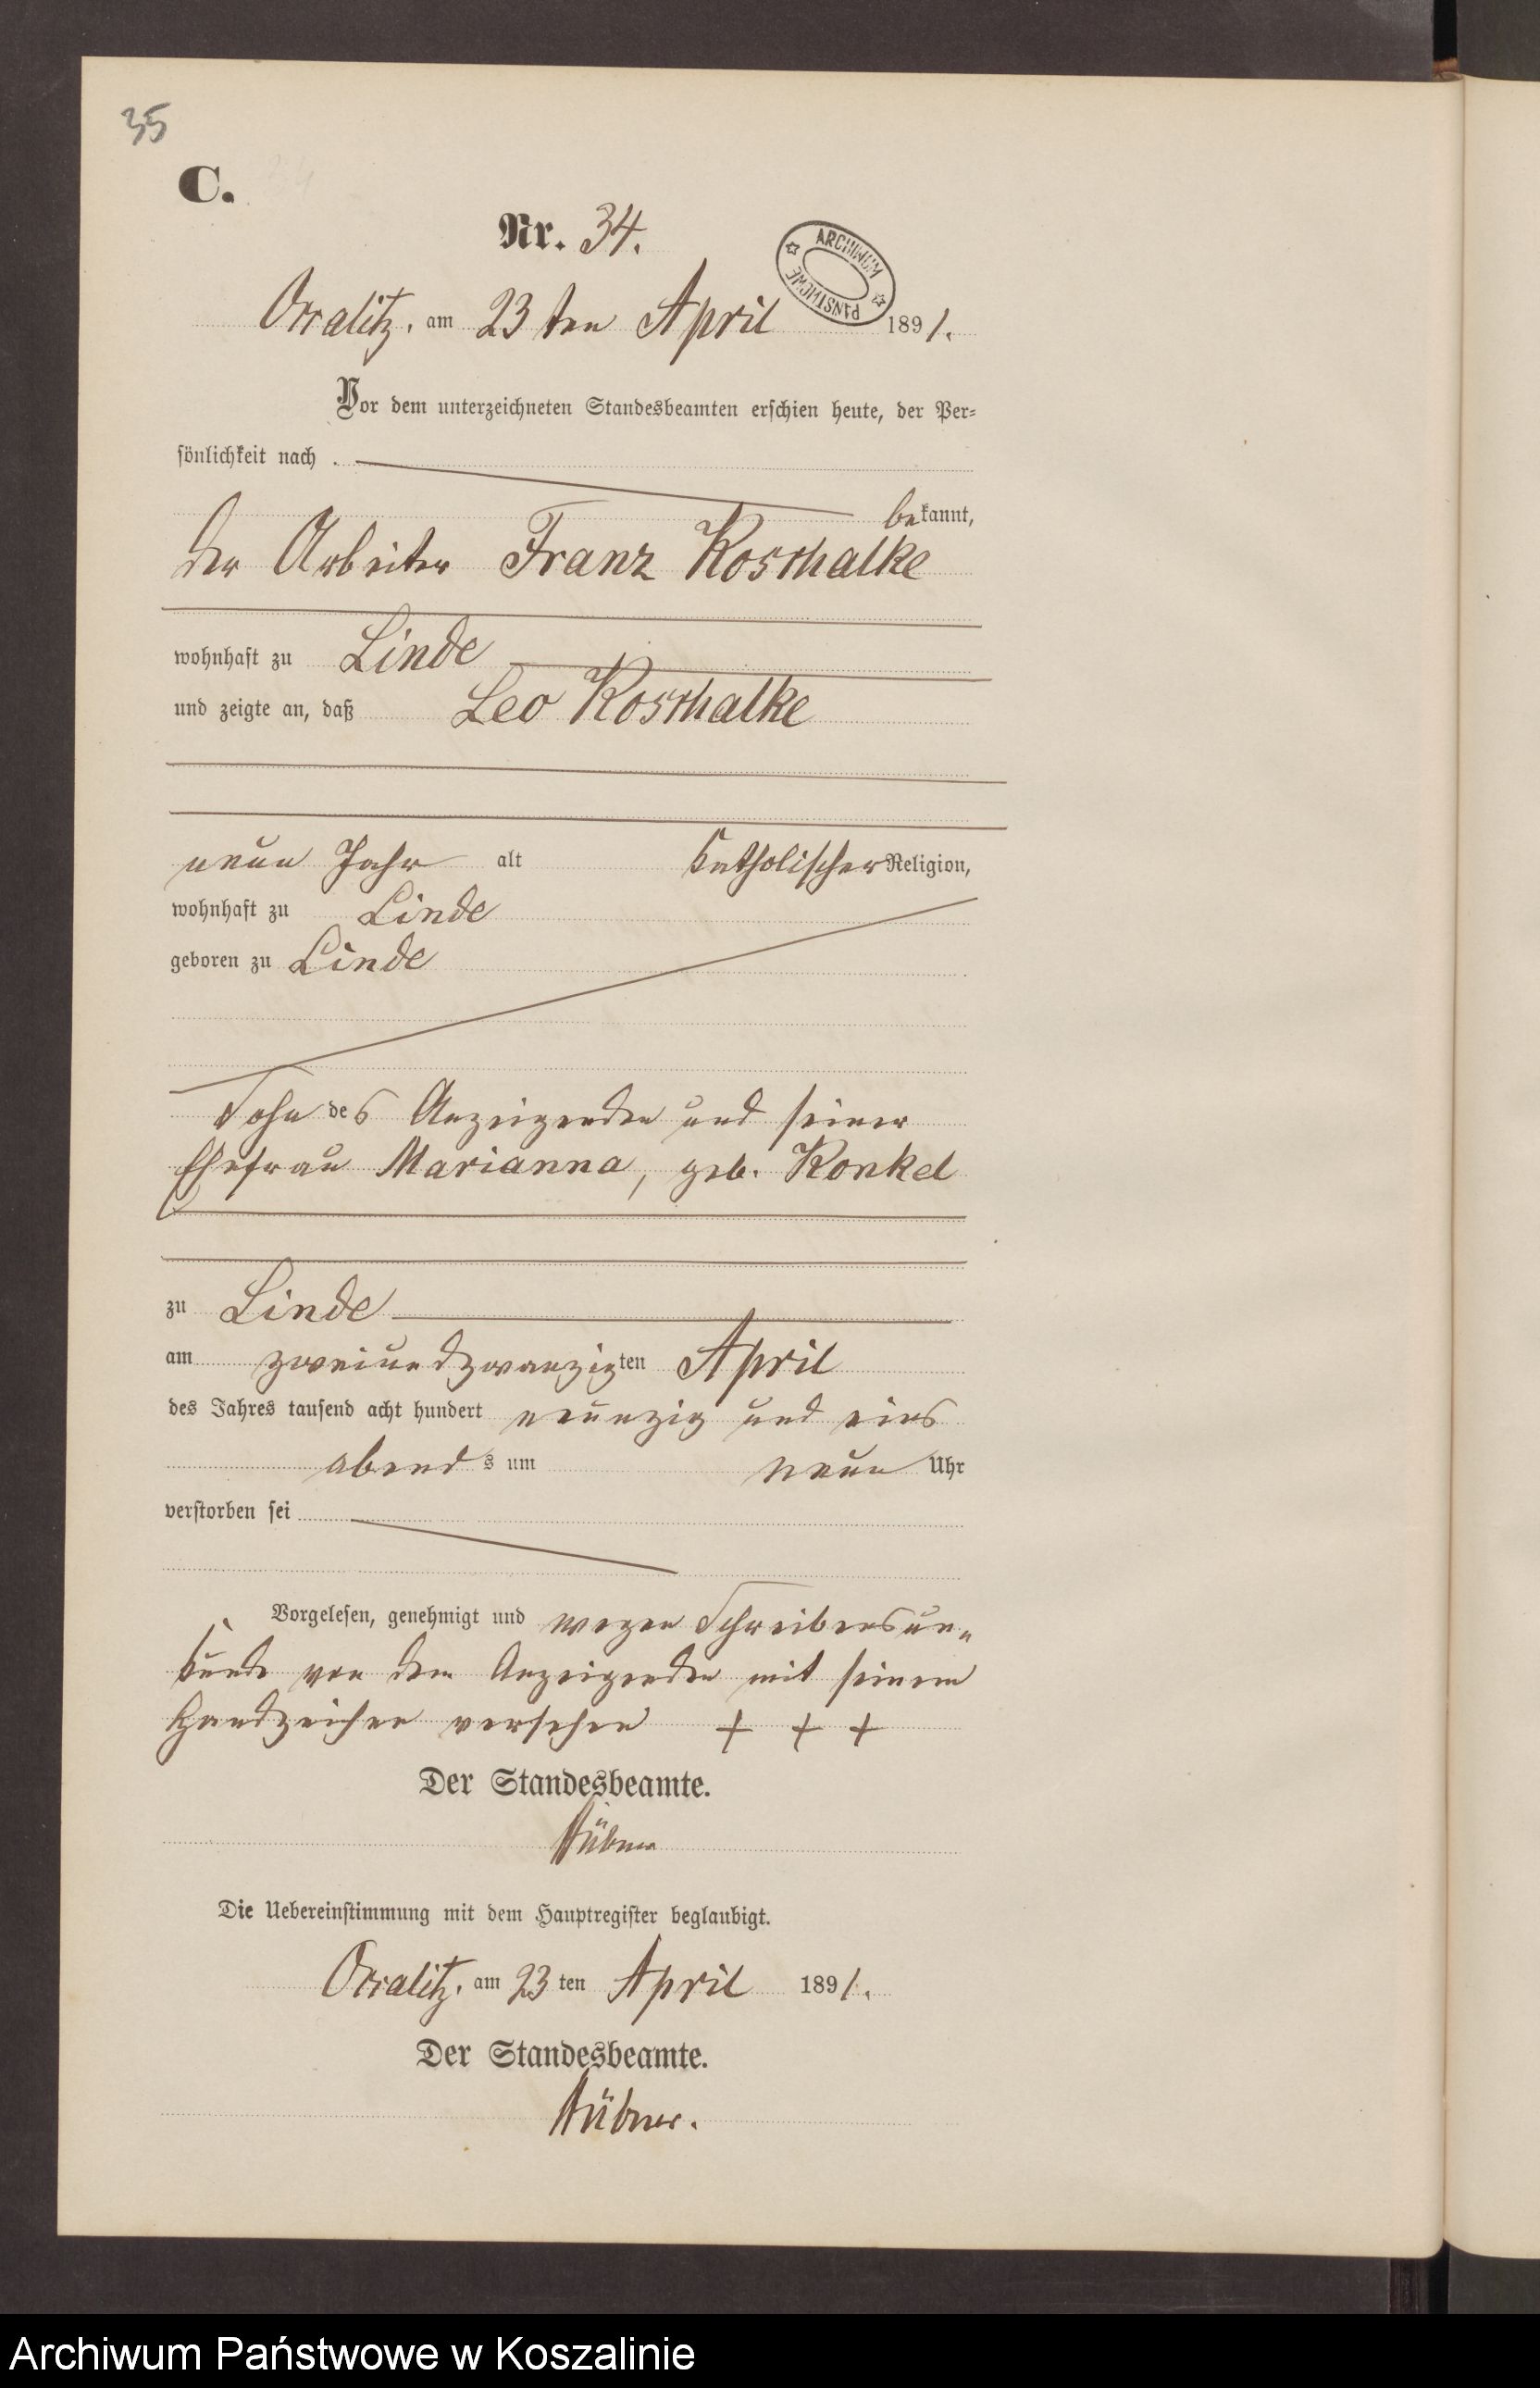 35
C.
Nr. 34.
ARCHIWUM PAŃSTWOWE
am 23ten April 1891.
Vor dem unterzeichneten Standesbeamten erschien heute, der Per-
sönlichkeit nach
bekannt,
der Arbeiter Franz Kosthalke
wohnhaft zu Linde
und zeigte an, daß Leo Kosthalke
neun Jahr alt katholischer Religion,
wohnhaft zu Linde
geboren zu Linde
Sohn des Anzeigenden und seiner
Ehefrau Marianna, geb. Konkel
zu Linde
am zweiundzwanzigten April
des Jahres tausend acht hundert neunzig und eins
abends um neun Uhr
verstorben sei
Vorgelesen, genehmigt und wegen Schreibensun-
kunde von dem Anzeigenden mit seinem
Handzeichen versehen + + +
Der Standesbeamte.
Die Uebereinstimmung mit dem Hauptregister beglaubigt.
am 23ten April 1891.
Der Standesbeamte.
Archiwum Państwowe w Koszalinie